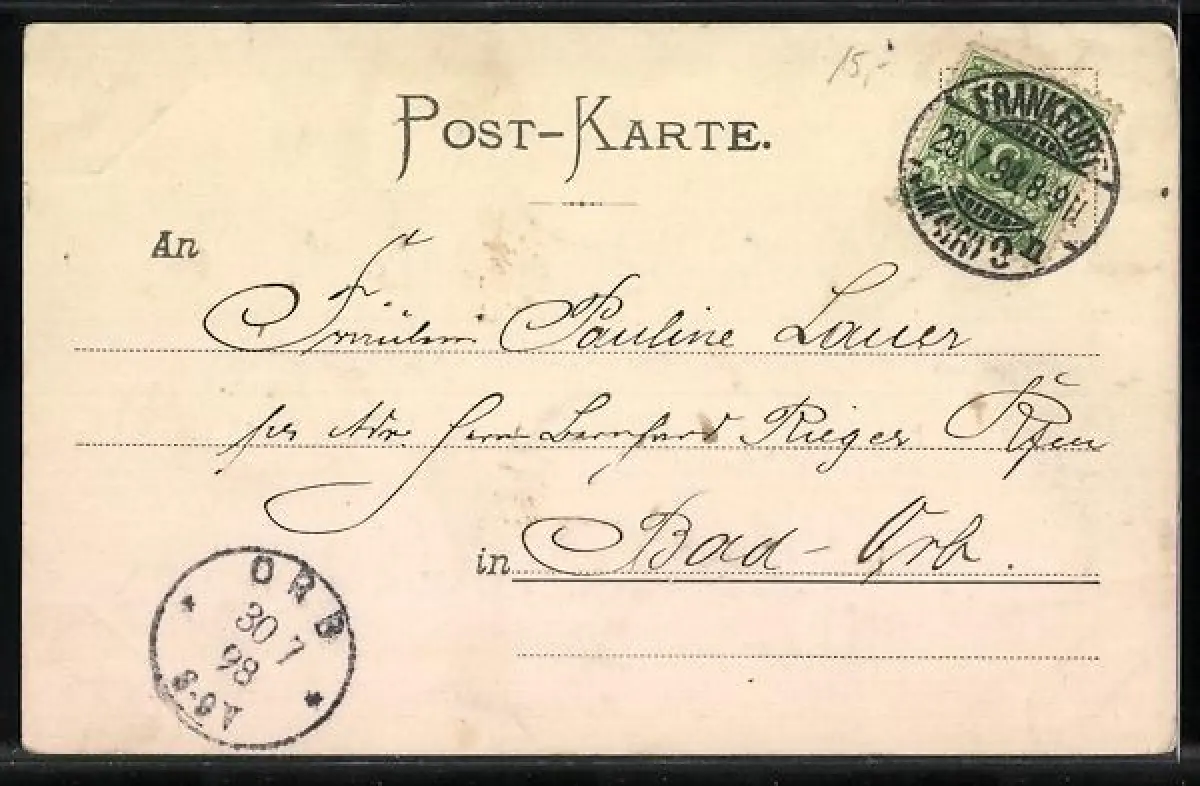 15,-
POST-KARTE.
FRANKFURT
29.7.98.8-9N.
(MAIN) 9
An
Fräulein Pauline Lauer
per Adr. Herrn Bernhard Rieger
in Bad-Orb.
ORB
30 7
98
8-9V